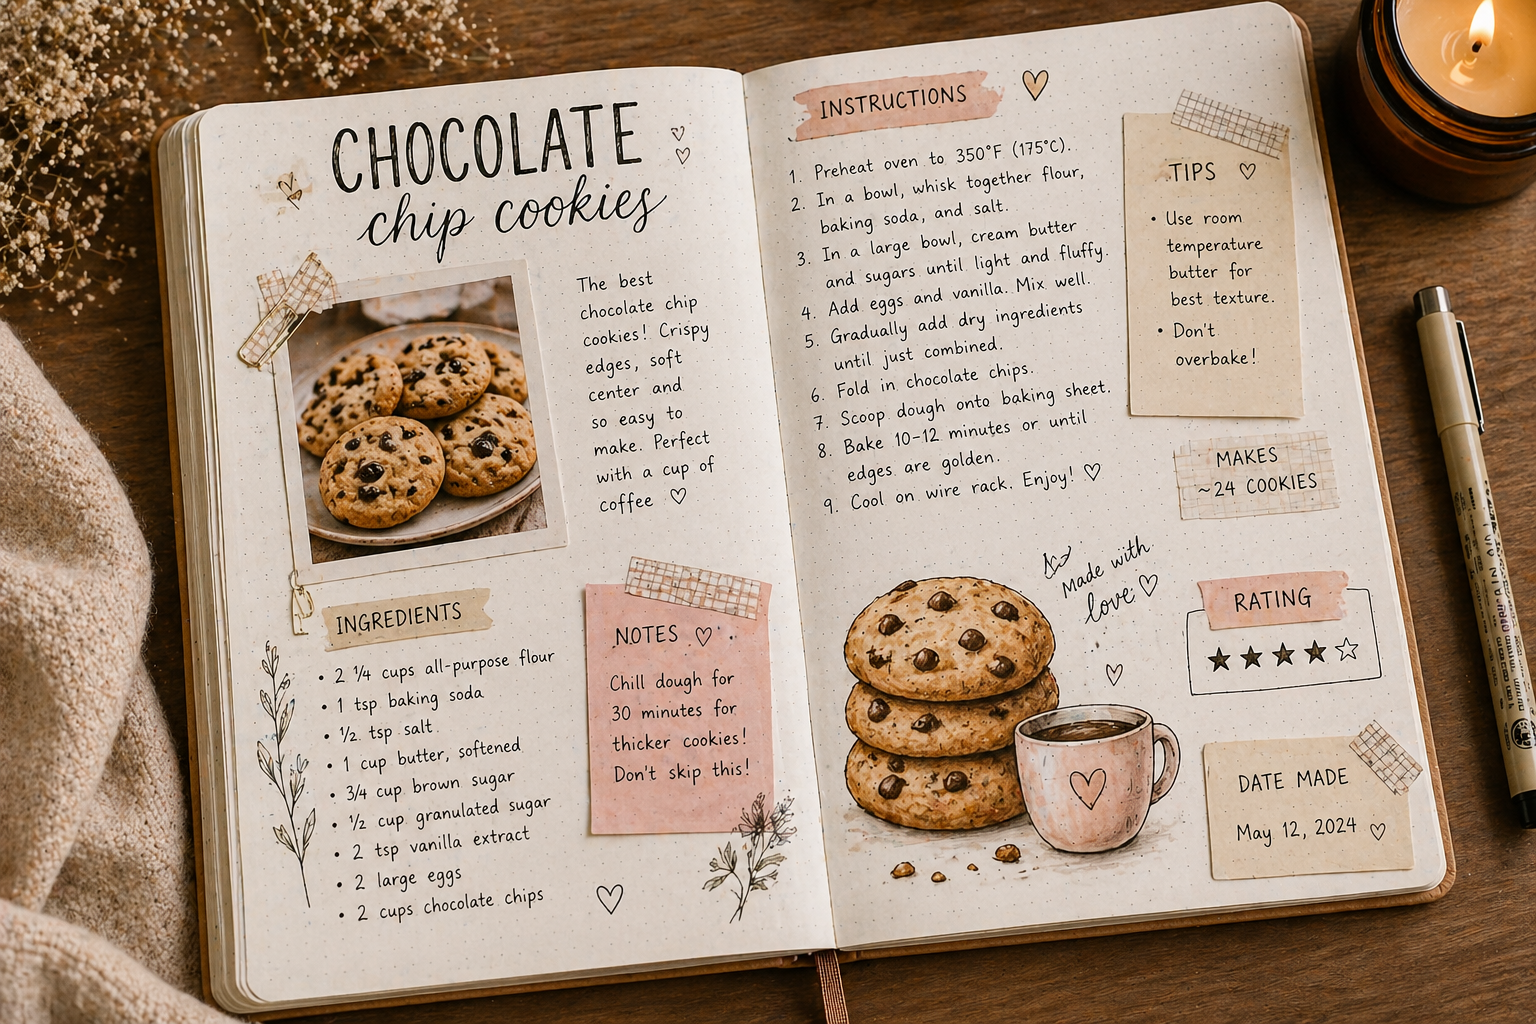 CHOCOLATE
chip cookies
The best
chocolate chip
cookies! Crispy
edges, soft
center and
so easy to
make. Perfect
with a cup of
coffee ♡
INGREDIENTS
• 2 ¼ cups all-purpose flour
• 1 tsp baking soda
• ½ tsp salt
• 1 cup butter, softened
• 3/4 cup brown sugar
• ½ cup granulated sugar
• 2 tsp vanilla extract
• 2 large eggs
• 2 cups chocolate chips
NOTES ♡
Chill dough for
30 minutes for
thicker cookies!
Don't skip this!
INSTRUCTIONS
1. Preheat oven to 350°F (175°C).
2. In a bowl, whisk together flour,
baking soda, and salt.
3. In a large bowl, cream butter
and sugars until light and fluffy.
4. Add eggs and vanilla. Mix well.
5. Gradually add dry ingredients
until just combined.
6. Fold in chocolate chips.
7. Scoop dough onto baking sheet.
8. Bake 10-12 minutes or until
edges are golden.
9. Cool on wire rack. Enjoy! ♡
TIPS ♡
• Use room
temperature
butter for
best texture.
• Don't
overbake!
MAKES
~24 COOKIES
Made with
love ♡
RATING
★★★★☆
DATE MADE
May 12, 2024 ♡